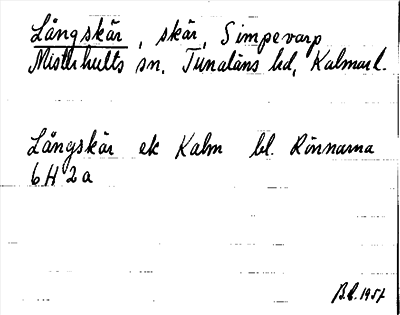 Långskär, skär, Simpevarp
Misterhults sn, Tunaläns hd, Kalmar l.
Långskär ek Kalm bl. Rönnarna
6H 2a
B.L. 1957